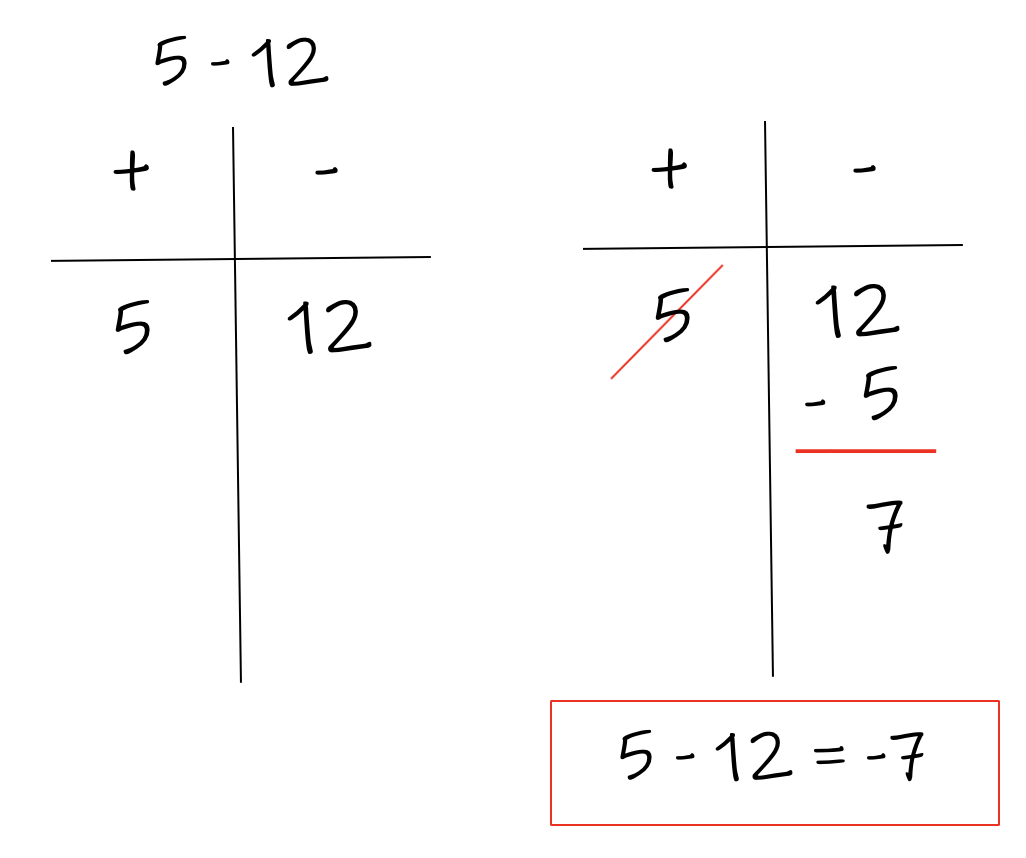 5 - 12
+ -
5 12
+ -
5 12
- 5
7
5 - 12 = -7